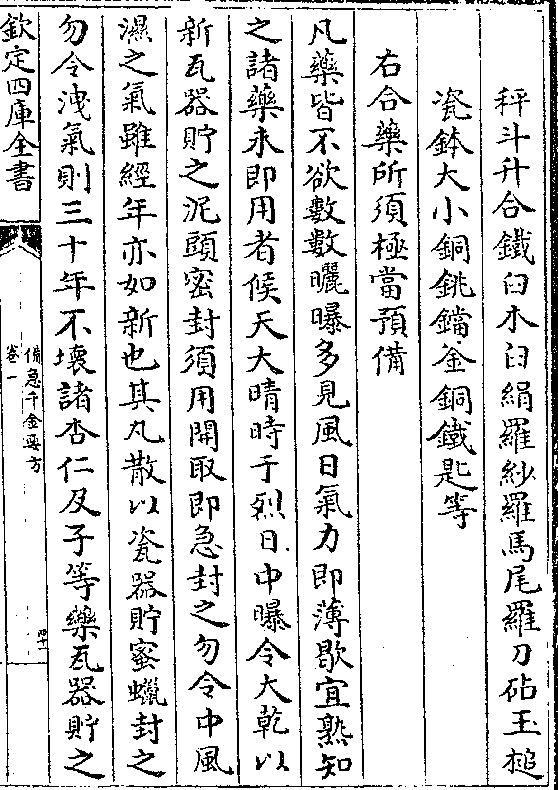 秤斗升合鐵臼木臼絹羅紗羅馬尾羅刀砧玉槌
瓷鉢大小銅銚鐺釡銅鐵匙等
右合藥所須極當預備
凡藥皆不欲數數曬曝多見風日氣力即薄歇宜熟知
之諸藥未即用者候天大晴時于烈日中曝令大乾以
新瓦器貯之泥頭密封須用開取即急封之勿令中風
濕之氣雖經年亦如新也其丸散以瓷器貯蜜蠟封之
勿令洩氣則三十年不壞諸杏仁及子等藥瓦器貯之
欽定四庫全書
備急千金要方
卷一